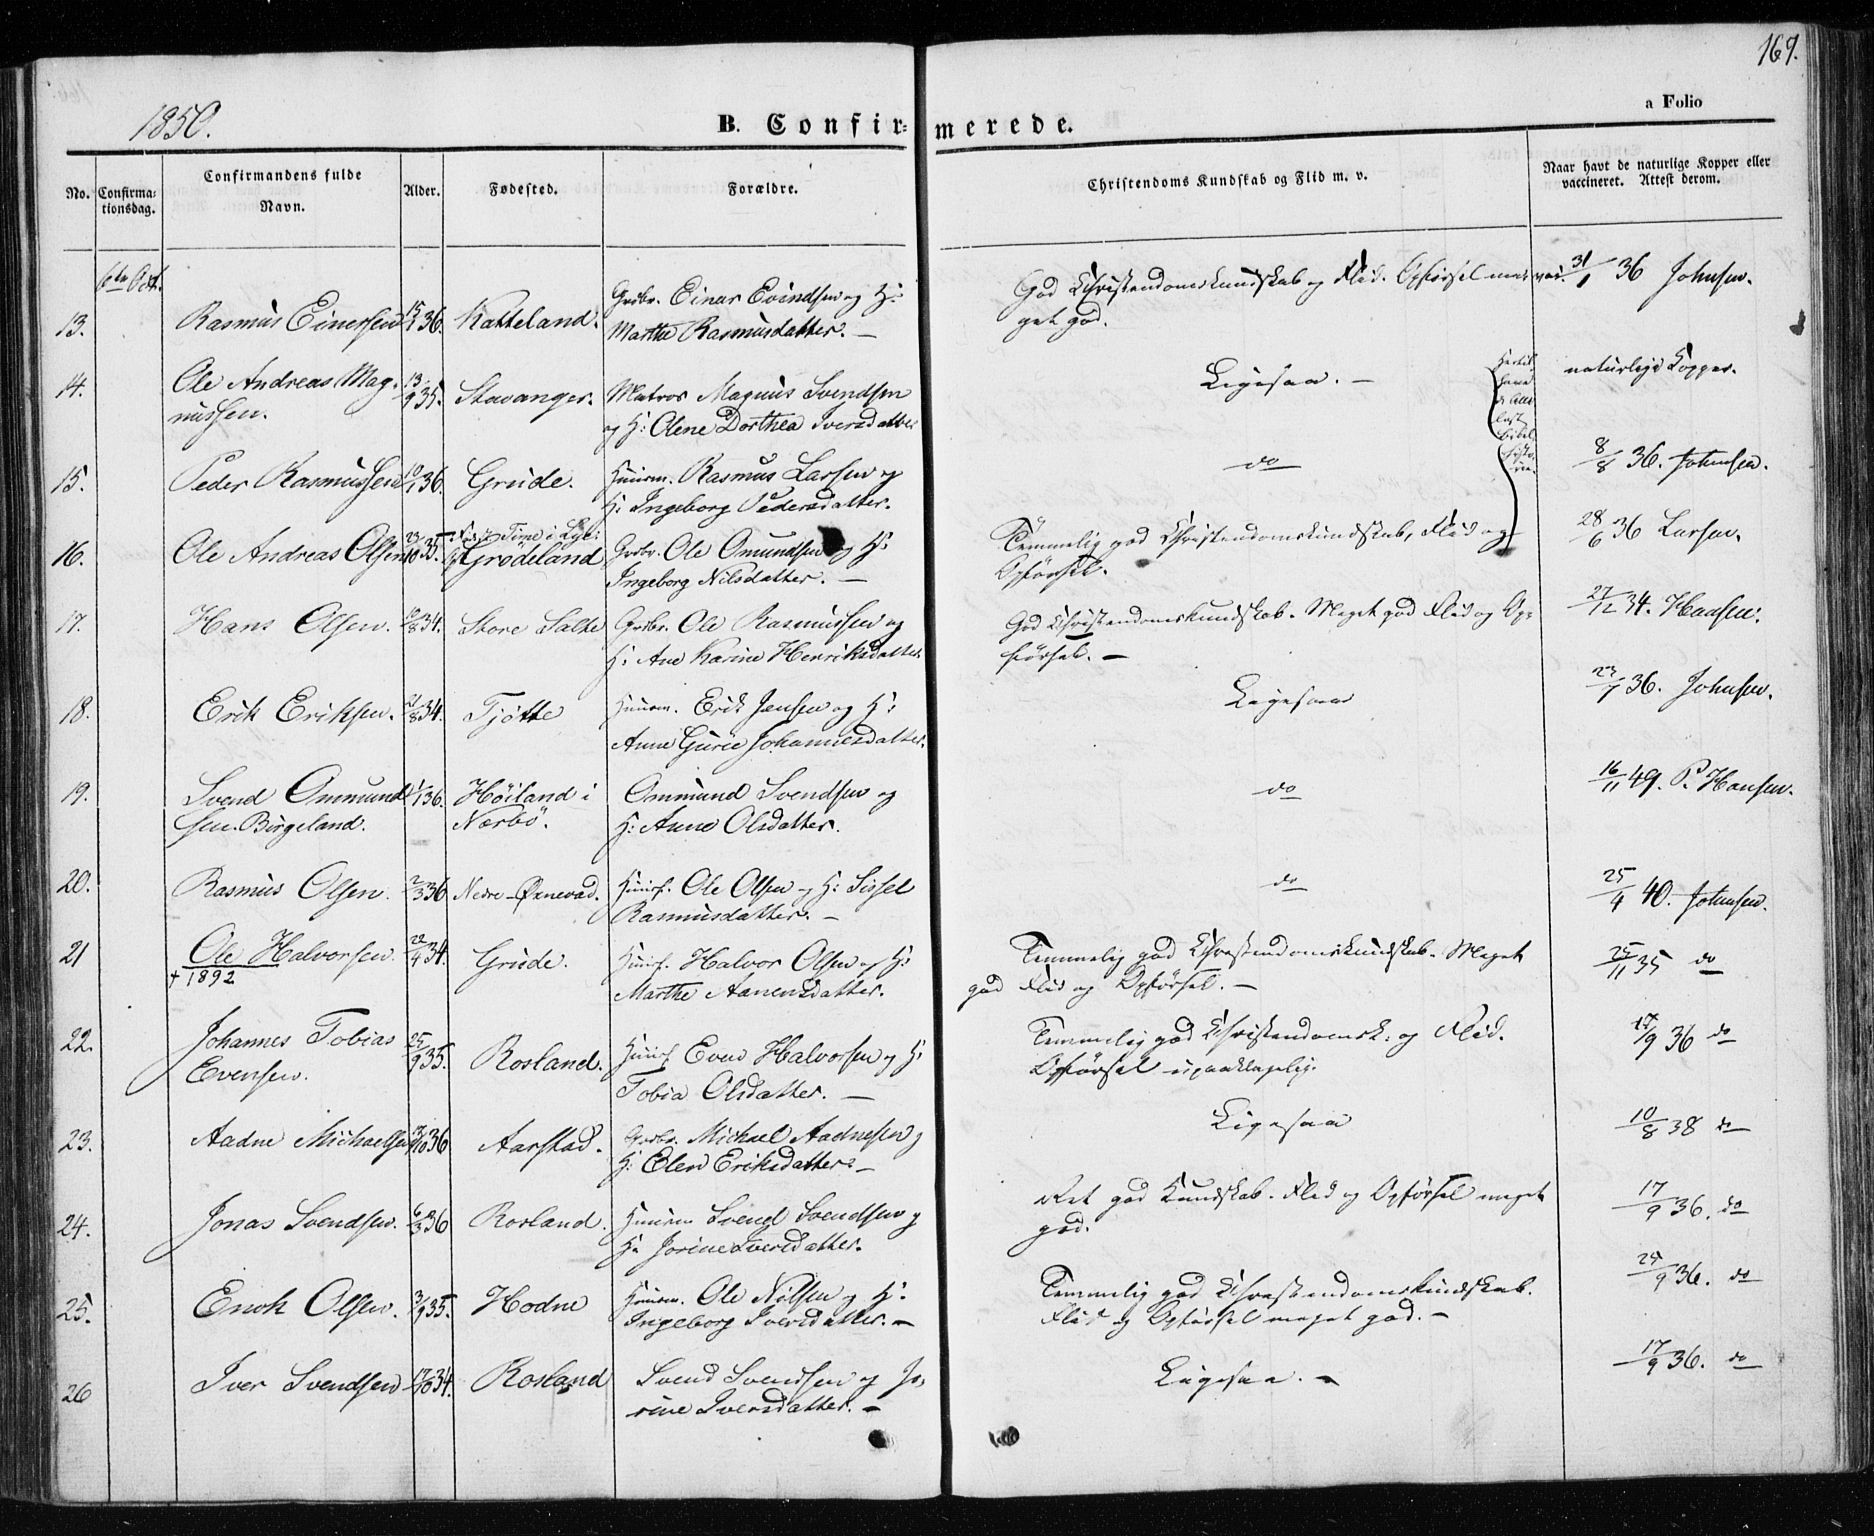 167.
1850.
B. Confir= merede.
a Folio
No.
Confirma-
tionsdag.
Confirmandens fulde
Navn.
Alder.
Fødested.
Forældre.
Christendoms Kundskab og Flid m. v.
Naar havt de naturlige Kopper eller
vaccineret. Attest derom.
6te Oct.
13. Rasmus Einersen 15/1 36. Katteland. Grdbr. Einar Evindsen og H:
Marthe Rasmusdatter. —
God Christendomskundskab og Flid. Opførsel me-
get god.
31/1 36 Johnsen.
14. Ole Andreas Mag-
nussen. 13/9 35. Stavanger. Matros Magnus Svendsen
og H: Olene Dorthea Iversdatter
Ligesaa. —
naturlige Kopper.
15. Peder Rasmussen 10/1 36. Grude. Huusm. Rasmus Larsen og
H: Ingeborg Pedersdatter.
do
8/8 36. Johnsen.
16. Ole Andreas Olsen 23/10 35. Time i Lye:
Grødeland Grdbr. Ole Omundsen og H:
Ingeborg Nilsdatter. —
Temmelig god Christendomskundskab, Flid og
Opførsel.
28/6 36 Larsen.
17. Hans Olsen. 10/8 34. Store Salte Grdbr. Ole Rasmussen og
H: Ane Karine Henriksdatter
God Christendomskundskab. Meget god Flid og Op-
førsel. —
27/12 34. Hansen.
18. Erik Eriksen. 21/8 34. Tjøtte Huusm. Erik Jensen og H:
Anne Gurie Johannesdatter.
Ligesaa
23/7 36. Johnsen.
19. Svend Ommund-
sen Birgeland. 1/1 36. Høiland i
Nærbø. Ommund Svendsen og
H: Anne Olsdatter.
do
16/11 49. P. Hansen.
20. Rasmus Olsen. 2/3 36 Nedre-Øxnevad. Huusf. Ole Olsen og H: Sissel
Rasmusdatter. —
do
25/4 40. Johnsen.
21 Ole Halvorsen. 22/4 34. Grude. Huusf. Halvor Olsen og H:
† 1892
Marthe Aanensdatter.
Temmelig god Christendomskundskab. Meget
god Flid og Opførsel. —
25/11 35 do
22. Johannes Tobias
Evensen. 25/9 35. Rosland. Huusf. Even Halvorsen og H:
Tobia Olsdatter. —
Temmelig god Christendomsk: og Flid.
Opførsel upaaklagelig.
17/9 36 do
23. Aadne Michaelsen /10 36 Aarstad. Grdbr. Michael Aadnesen og
H: Elen Eriksdatter —
Ligesaa
10/8 38 do
24. Jonas Svendsen. 6/3 36 Rosland. Huusm Svend Svendsen og
H: Jorine Iversdatter.
Ret god Kundskab. Flid og Opførsel meget
god.
17/9 36. do
25. Enok Olsen. 3/9 35. Hodne Huusm. Ole Nilsen og H:
Ingeborg Iversdatter. —
Temmelig god Christendomskundskab.
Flid og Opførsel meget god. —
24/9 36. do
26 Iver Svendsen 17/10 34. Rosland Svend Svendsen og Jo-
rine Iversdatter. —
Ligesaa. —
17/9 36. do